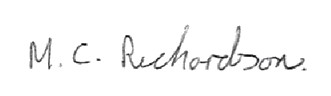 M. C. Richardson.